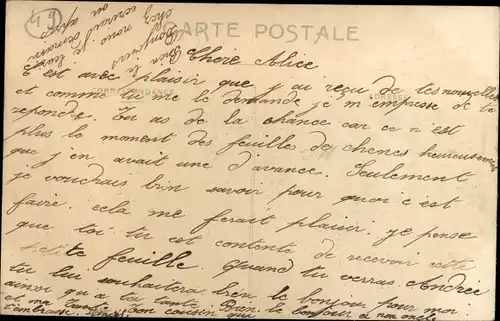 49
CARTE POSTALE
CORRESPONDANCE
Bien le
Bonjour
chez nous
écrirai demain
ou après
Chère Alice
C'est avec plaisir que j'ai reçu de tes nouvelles
et comme tu me le demande je m'empresse de te
repondre. Tu as de la chance car ce n'est
plus le moment des feuilles des chenes heureusement
que j'en avait une d'avance. Seulement
je voudrais bien savoir pour quoi c'est
faire. cela me ferait plaisir. je pense
que toi tu est contente de recevoir cette
petite feuille. Quand tu verras Andrée
tu lui souhaitera bien le bonjour pour moi
ainsi qu'a ta tante. Bien le bonjour a mon oncle
et ma tante. Ton cousin qui
t'embrasse.